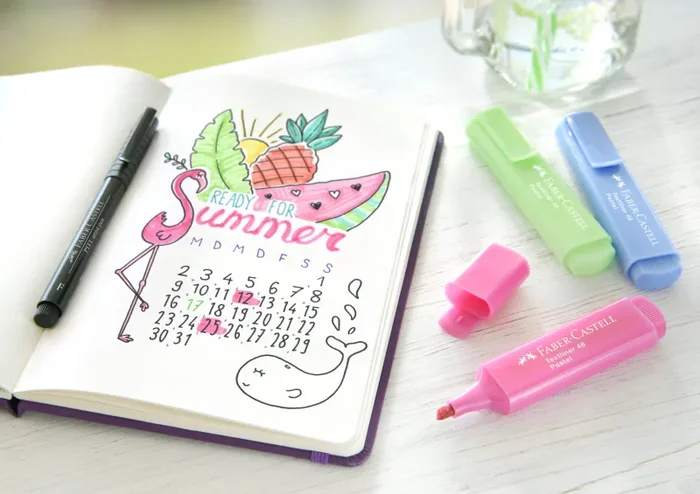 READY FOR
Summer
M D M D F S S
1
2 3 4 5 6 7 8
9 10 11 12 13 14 15
16 17 18 19 20 21 22
23 24 25 26 27 28 29
30 31
FABER-CASTELL
PITT
F
FABER-CASTELL
Textliner 46
Pastel
FABER-CASTELL
Textliner 46
Pastel
FABER-CASTELL
Textliner 46
Pastel